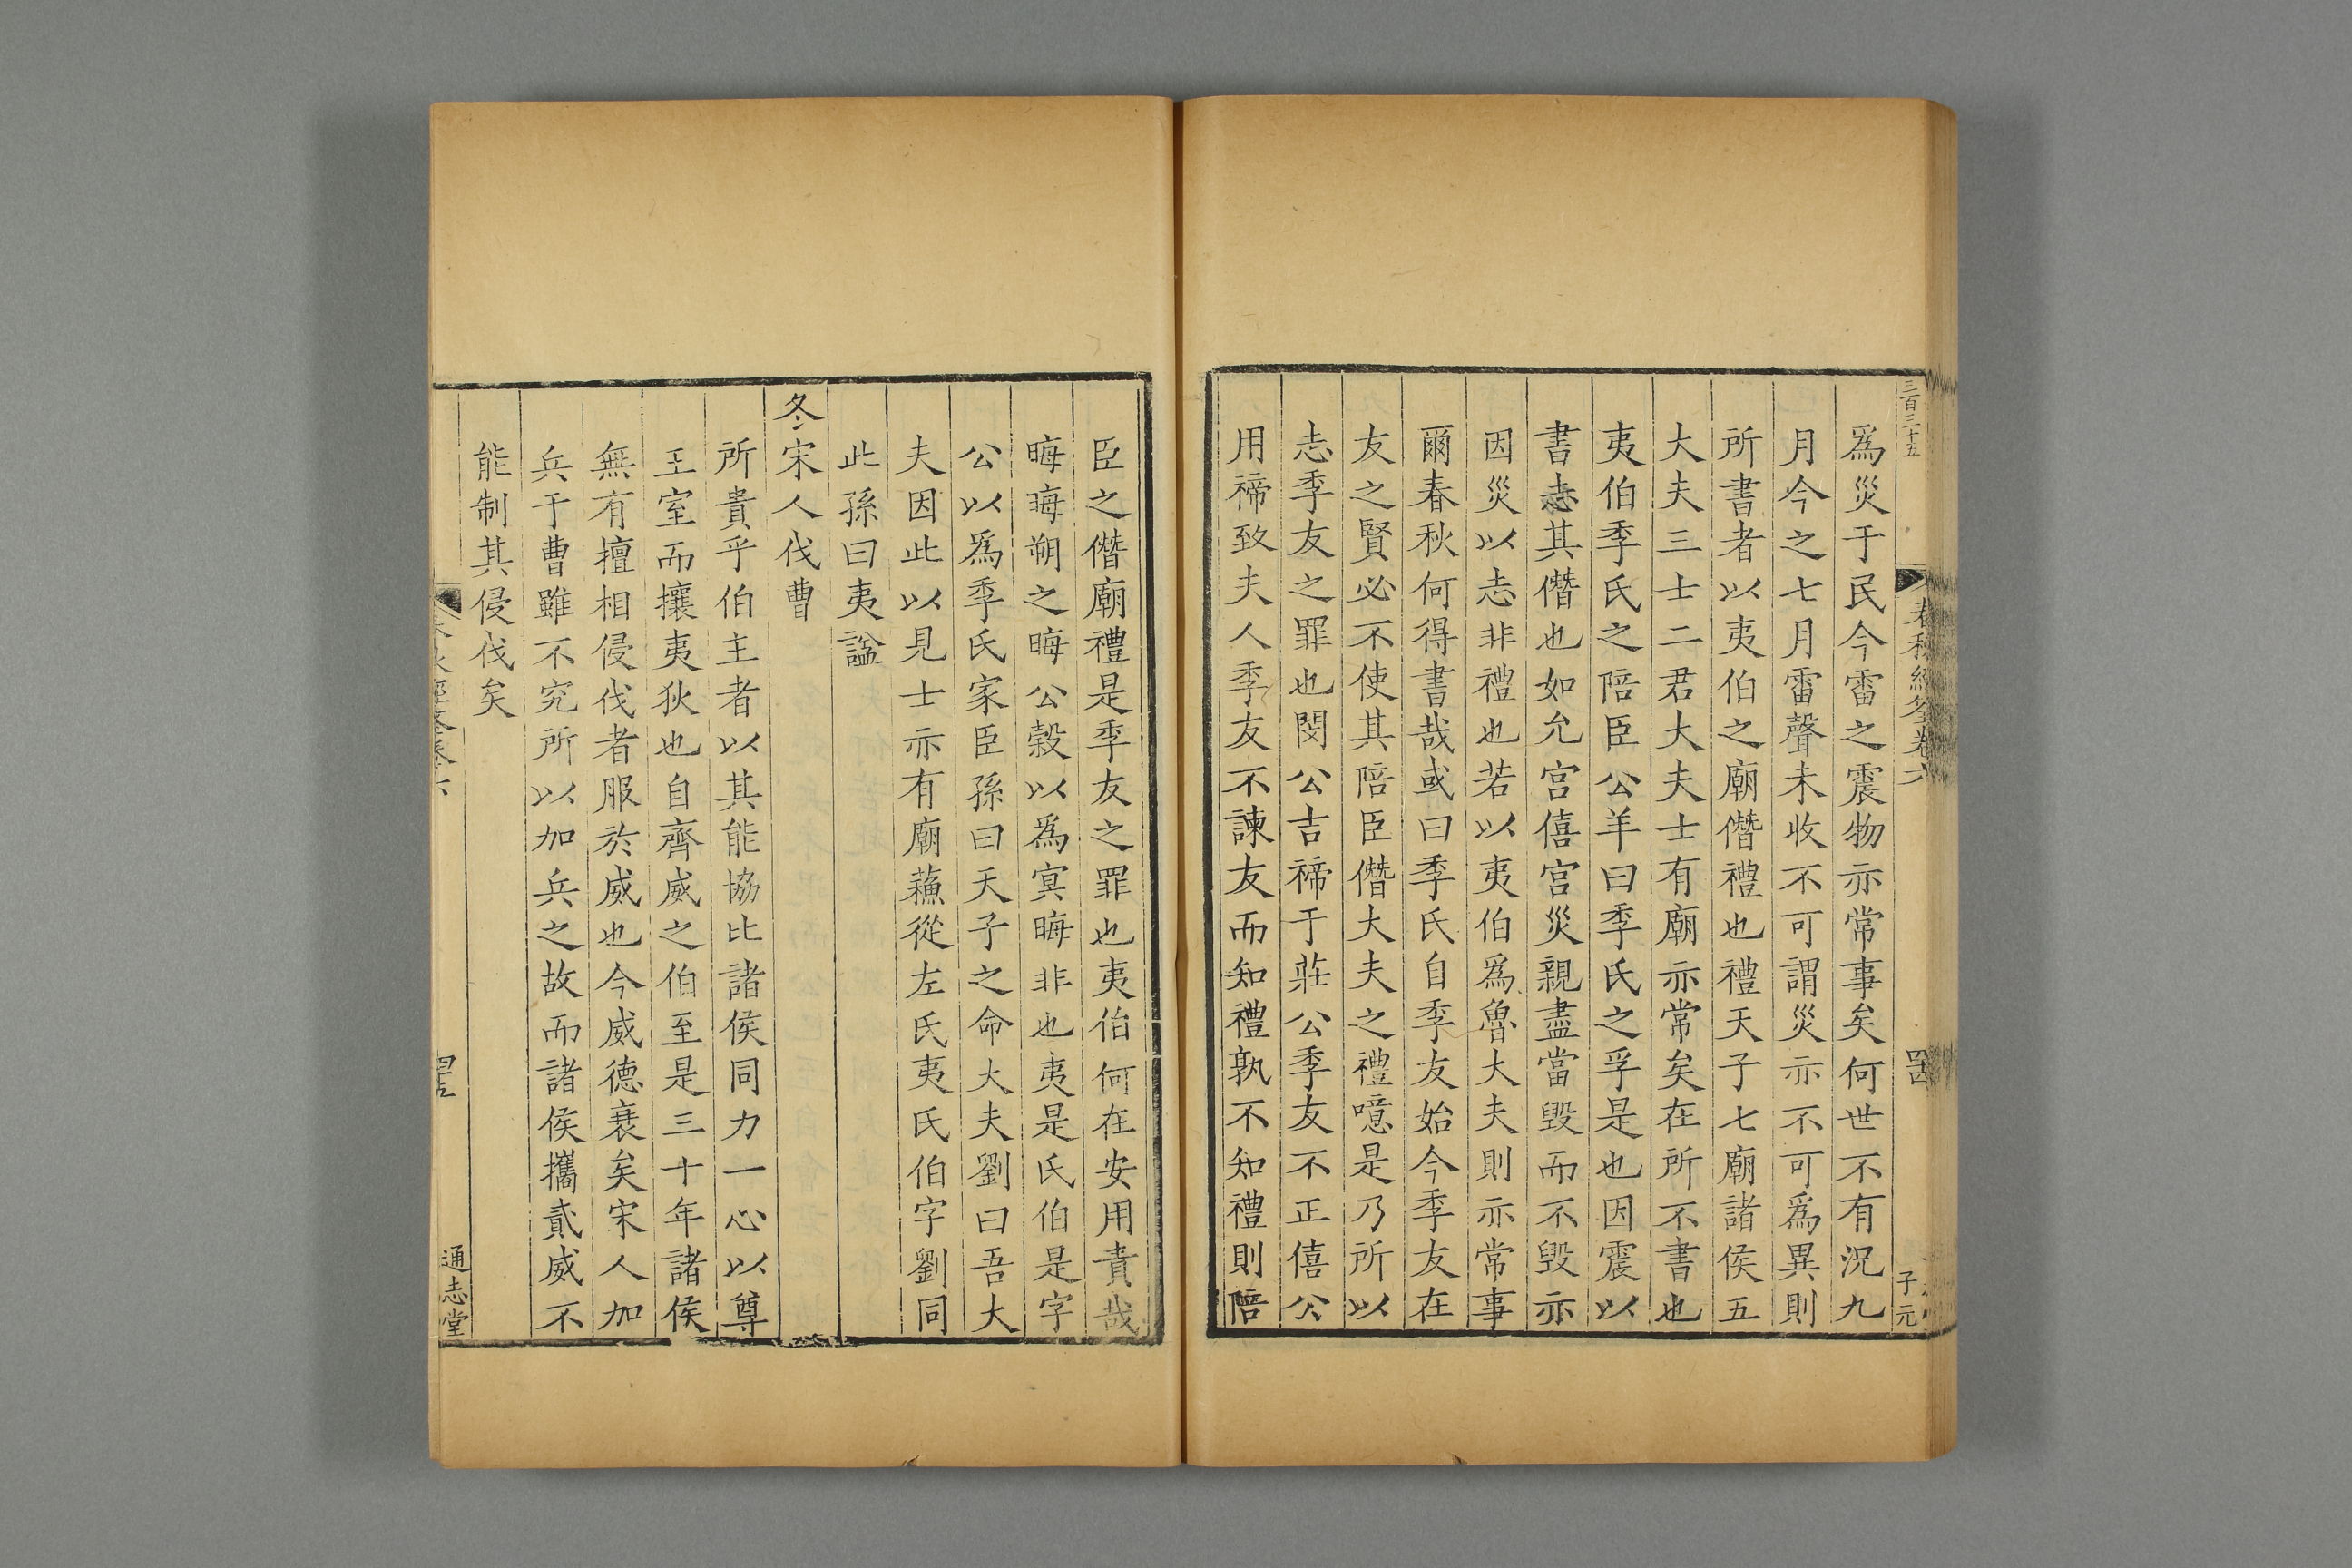 三百三十五
春秋經筌卷六
四十四
子元
爲災于民今雷之震物亦常事矣何世不有況九
月今之七月雷聲未收不可謂災亦不可爲異則
所書者以夷伯之廟僭禮也禮天子七廟諸侯五
大夫三士二君大夫士有廟亦常矣在所不書也
夷伯季氏之陪臣公羊曰季氏之孚是也因震以
書志其僭也如允宫僖宫災親盡當毀而不毀亦
因災以志非禮也若以夷伯爲魯大夫則亦常事
爾春秋何得書哉或曰季氏自季友始今季友在
友之賢必不使其陪臣僭大夫之禮噫是乃所以
志季友之罪也閔公吉禘于莊公季友不正僖公
用禘致夫人季友不諫友而知禮孰不知禮則陪
臣之僭廟禮是季友之罪也夷伯何在安用責哉
晦晦朔之晦公穀以爲冥晦非也夷是氏伯是字
公以爲季氏家臣孫曰天子之命大夫劉曰吾大
夫因此以見士亦有廟蘓從左氏夷氏伯字劉同
此孫曰夷謚
冬宋人伐曹
所貴乎伯主者以其能協比諸侯同力一心以尊
王室而攘夷狄也自齊威之伯至是三十年諸侯
無有擅相侵伐者服於威也今威德衰矣宋人加
兵于曹雖不究所以加兵之故而諸侯攜貳威不
能制其侵伐矣
四十五
通志堂